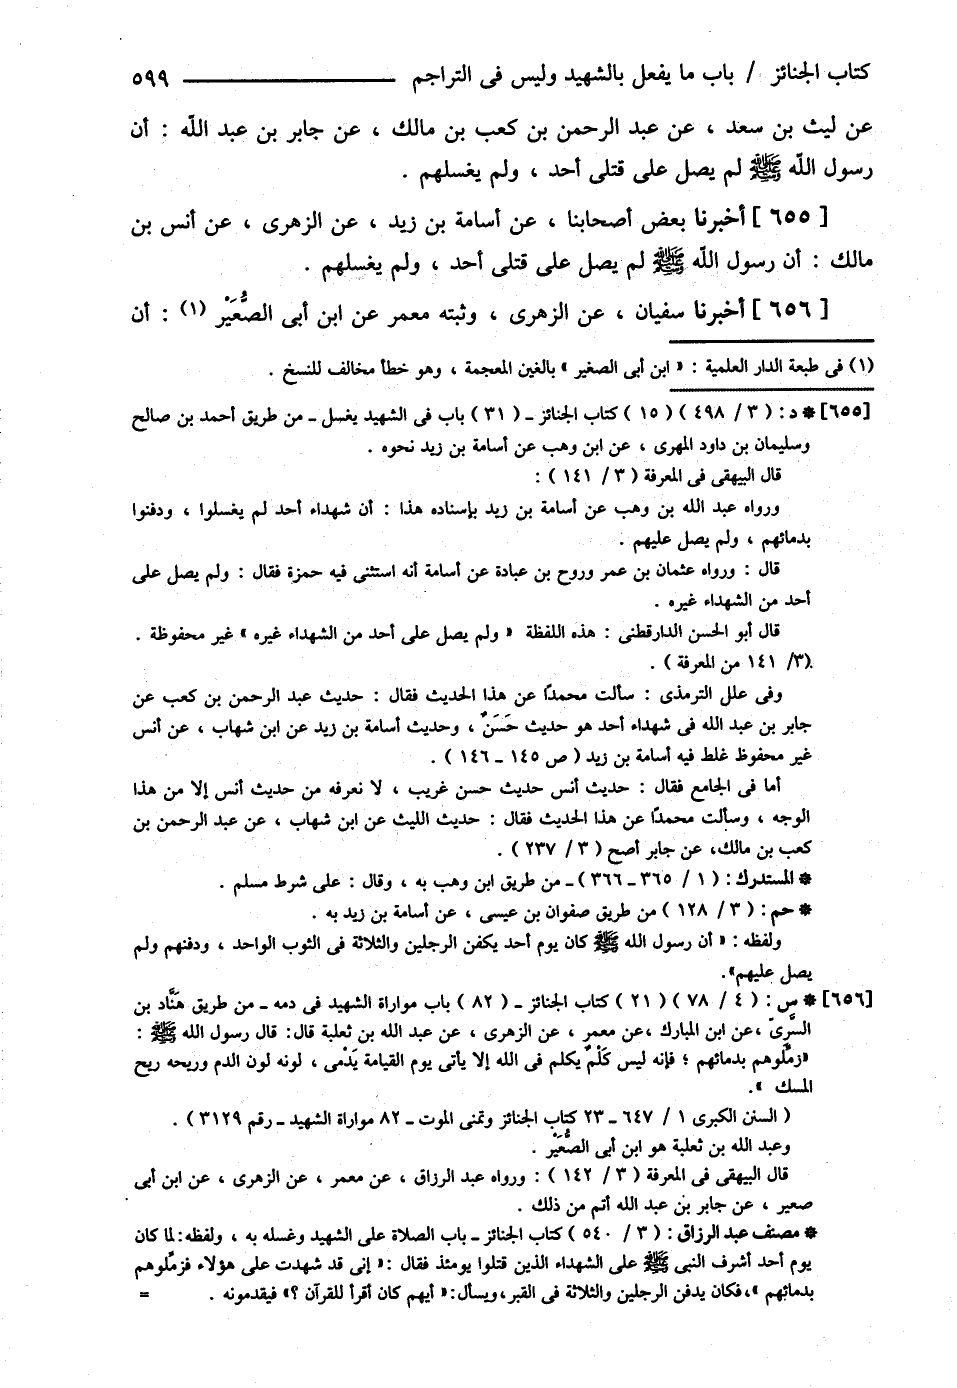 كتاب الجنائز / باب ما يفعل بالشهيد وليس فى التراجم ٥٩٩
عن ليث بن سعد ، عن عبد الرحمن بن كعب بن مالك ، عن جابر بن عبد اللّه : أن
رسول اللّه ﷺ لم يصل على قتلى أحد ، ولم يغسلهم .
[ ٦٥٥ ] أخبرنا بعض أصحابنا ، عن أسامة بن زيد ، عن الزهرى ، عن أنس بن
مالك : أن رسول اللّه ﷺ لم يصل على قتلى أحد ، ولم يغسلهم .
[ ٦٥٦ ] أخبرنا سفيان ، عن الزهرى ، وثبته معمر عن ابن أبى الصُّعَيْر (١) : أن
(١) فى طبعة الدار العلمية : « ابن أبى الصغير » بالغين المعجمة ، وهو خطأ مخالف للنسخ .
[٦٥٥] * د : ( ٣ / ٤٩٨ ) ( ١٥ ) كتاب الجنائز ـ ( ٣١ ) باب فى الشهيد يغسل ـ من طريق أحمد بن صالح
وسليمان بن داود المهرى ، عن ابن وهب عن أسامة بن زيد نحوه .
قال البيهقى فى المعرفة ( ٣ / ١٤١ ) :
ورواه عبد الله بن وهب عن أسامة بن زيد بإسناده هذا : أن شهداء أحد لم يغسلوا ، ودفنوا
بدمائهم ، ولم يصل عليهم .
قال : ورواه عثمان بن عمر وروح بن عبادة عن أسامة أنه استثنى فيه حمزة فقال : ولم يصل على
أحد من الشهداء غيره .
قال أبو الحسن الدارقطنى : هذه اللفظة « ولم يصل على أحد من الشهداء غيره » غير محفوظة .
(٣/ ١٤١ من المعرفة ) .
وفى علل الترمذى : سألت محمدًا عن هذا الحديث فقال : حديث عبد الرحمن بن كعب عن
جابر بن عبد الله فى شهداء أحد هو حديث حَسَنٌ ، وحديث أسامة بن زيد عن ابن شهاب ، عن أنس
غير محفوظ غلط فيه أسامة بن زيد ( ص ١٤٥ ـ ١٤٦ ) .
أما فى الجامع فقال : حديث أنس حديث حسن غريب ، لا نعرفه من حديث أنس إلا من هذا
الوجه ، وسألت محمدًا عن هذا الحديث فقال : حديث الليث عن ابن شهاب ، عن عبد الرحمن بن
كعب بن مالك، عن جابر أصح ( ٣ / ٢٣٧ ) .
* المستدرك : ( ١ / ٣٦٥ ـ ٣٦٦ ) ـ من طريق ابن وهب به ، وقال : على شرط مسلم .
* حم : ( ٣ / ١٢٨ ) من طريق صفوان بن عيسى ، عن أسامة بن زيد به .
ولفظه : « أن رسول الله ﷺ كان يوم أحد يكفن الرجلين والثلاثة فى الثوب الواحد ، ودفنهم ولم
يصل عليهم».
[٦٥٦] * س : ( ٤ / ٧٨ ) ( ٢١ ) كتاب الجنائز ـ ( ٨٢ ) باب مواراة الشهيد فى دمه ـ من طريق هَنَّاد بن
السَّرِىّ ،عن ابن المبارك ،عن معمر ، عن الزهرى ، عن عبد الله بن ثعلبة قال: قال رسول الله ﷺ :
«زمِّلوهم بدمائهم ؛ فإنه ليس كَلْمٌ يكلم فى الله إلا يأتى يوم القيامة يَدْمى ، لونه لون الدم وريحه ريح
المسك ».
( السنن الكبرى ١ / ٦٤٧ ـ ٢٣ كتاب الجنائز وتمنى الموت ـ ٨٢ مواراة الشهيد ـ رقم ٣١٢٩ ) .
وعبد الله بن ثعلبة هو ابن أبى الصُّعَيْر .
قال البيهقى فى المعرفة ( ٣ / ١٤٢ ) : ورواه عبد الرزاق ، عن معمر ، عن الزهرى ، عن ابن أبى
صعير ، عن جابر بن عبد الله أتم من ذلك .
* مصنف عبد الرزاق : ( ٣ / ٥٤٠ ) كتاب الجنائز ـ باب الصلاة على الشهيد وغسله به ، ولفظه: لما كان
يوم أحد أشرف النبى ﷺ على الشهداء الذين قتلوا يومئذ فقال :« إنى قد شهدت على هؤلاء فزمِّلوهم
بدمائهم »،فكان يدفن الرجلين والثلاثة فى القبر،ويسأل:« أيهم كان أقرأ للقرآن ؟» فيقدمونه . =